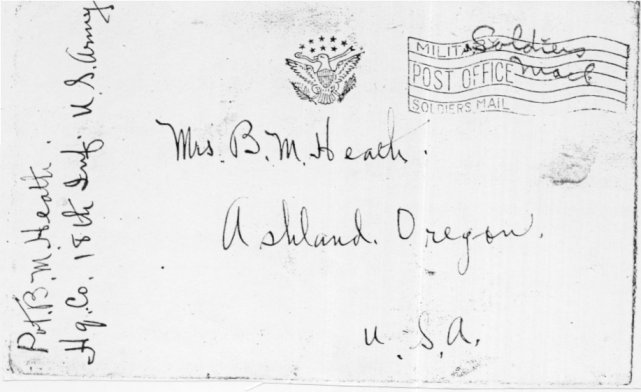 Pvt. B. M. Heath.
Hq. Co. 18th Inf. U.S. Army
MILIT
Soldiers
POST OFFICE
Mail
SOLDIERS MAIL
Mrs. B. M. Heath.
Ashland. Oregon.
U. S. A.